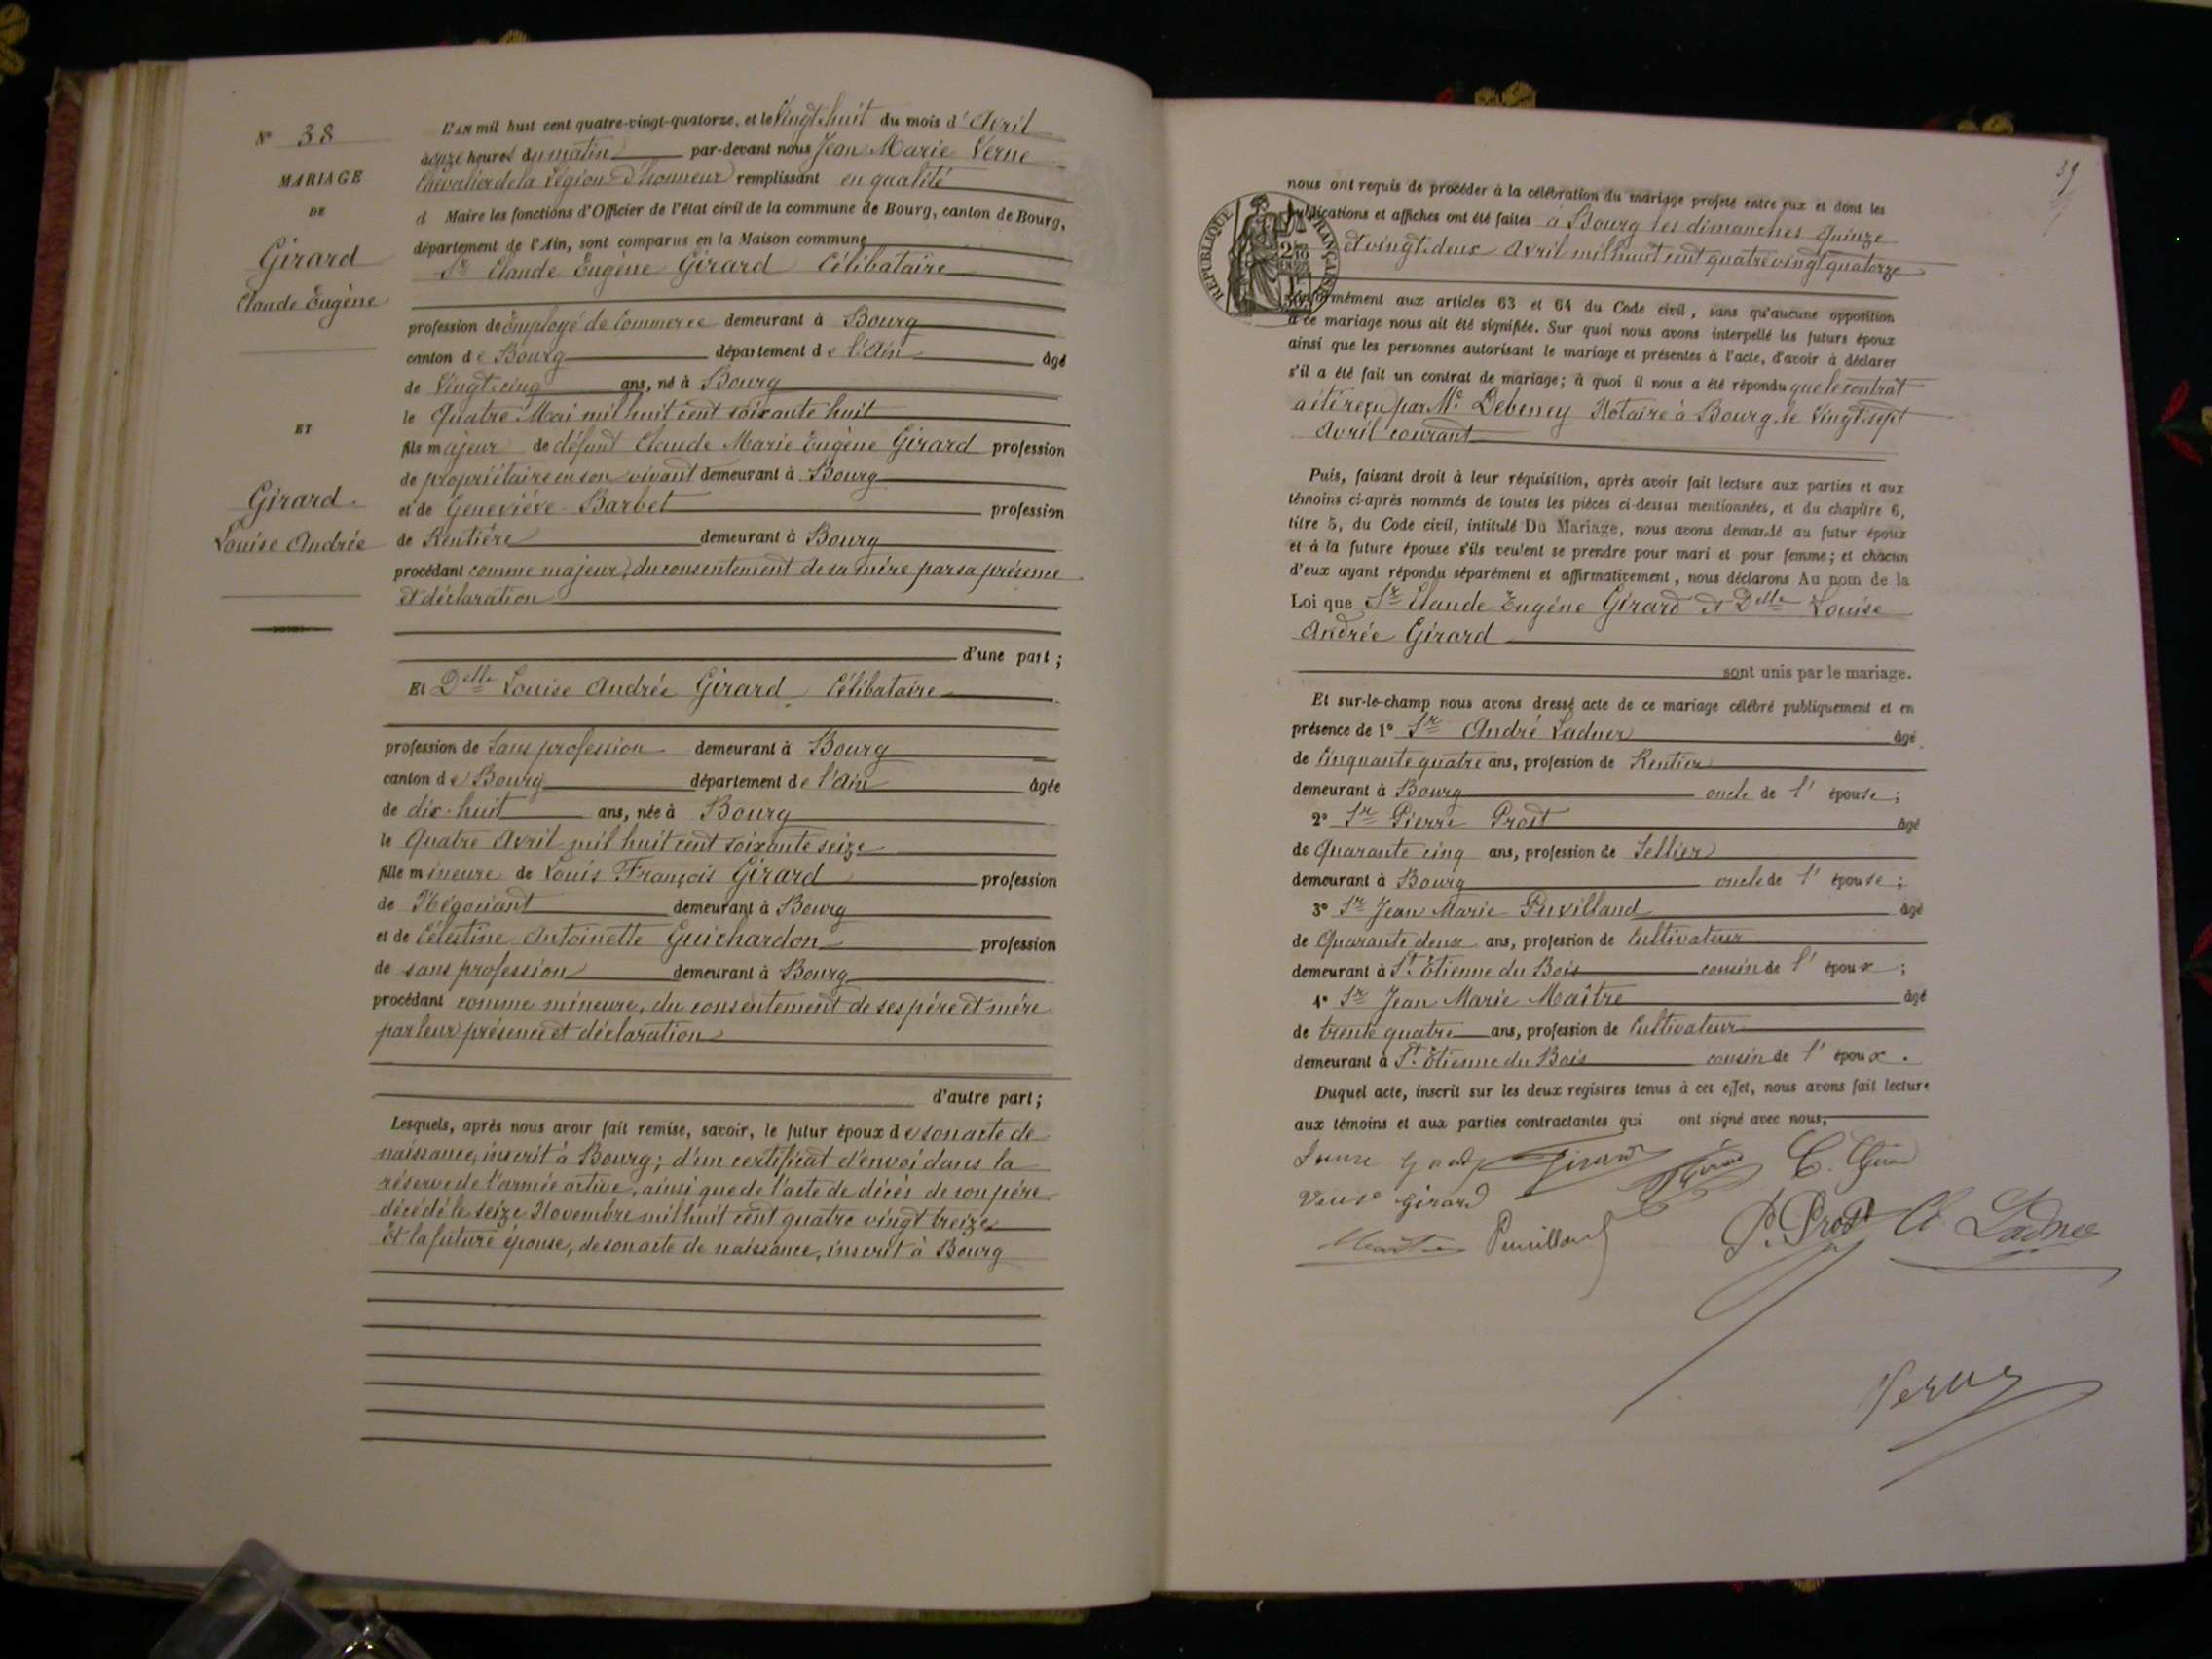 N° 38
MARIAGE
DE
Girard
Claude Eugène
ET
Girard
Louise Andrée
L'an mil huit cent quatre-vingt-quatorze, et le Vingt huit du mois d'Avril
à onze heures du matin par-devant nous Jean Marie Verne
Chevalier de la Légion d'honneur remplissant en qualité
d Maire les fonctions d'Officier de l'état civil de la commune de Bourg, canton de Bourg,
département de l'Ain, sont comparus en la Maison commune
Sr Claude Eugène Girard Célibataire
profession de Employé de Commerce demeurant à Bourg
canton de Bourg département de l'Ain âgé
de Vingt cinq ans, né à Bourg
le Quatre Mai mil huit cent soixante huit
fils majeur de défunt Claude Marie Eugène Girard profession
de propriétaire en son vivant demeurant à Bourg
et de Geneviève Barbet profession
de Rentière demeurant à Bourg
procédant comme majeur, du consentement de sa mère par sa présence
et déclaration
d'une part ;
Et Delle Louise Andrée Girard Célibataire
profession de Sans profession demeurant à Bourg
canton de Bourg département de l'Ain âgée
de dix-huit ans, née à Bourg
le Quatre Avril mil huit cent soixante seize
fille mineure de Louis François Girard profession
de Négociant demeurant à Bourg
et de Célestine Antoinette Guichardon profession
de sans profession demeurant à Bourg
procédant comme mineure, du consentement de ses père et mère
par leur présence et déclaration
d'autre part ;
Lesquels, après nous avoir fait remise, savoir, le futur époux de son acte de
naissance, inscrit à Bourg ; d'un certificat d'envoi dans la
réserve de l'armée active, ainsi que de l'acte de décès de son père
décédé le seize Novembre mil huit cent quatre vingt treize
Et la future épouse, de son acte de naissance, inscrit à Bourg
39
nous ont requis de procéder à la célébration du mariage projeté entre eux et dont les
publications et affiches ont été faites à Bourg les dimanches Quinze
et vingt deux Avril mil huit cent quatre vingt quatorze
RÉPUBLIQUE FRANÇAISE
conformément aux articles 63 et 64 du Code civil, sans qu'aucune opposition
à ce mariage nous ait été signifiée. Sur quoi nous avons interpellé les futurs époux
ainsi que les personnes autorisant le mariage et présentes à l'acte, d'avoir à déclarer
s'il a été fait un contrat de mariage ; à quoi il nous a été répondu que le contrat
a été reçu par Me Debeney Notaire à Bourg, le Vingt sept
Avril courant
Puis, faisant droit à leur réquisition, après avoir fait lecture aux parties et aux
témoins ci-après nommés de toutes les pièces ci-dessus mentionnées, et du chapitre 6,
titre 5, du Code civil, intitulé Du Mariage, nous avons demandé au futur époux
et à la future épouse s'ils veulent se prendre pour mari et pour femme ; et chacun
d'eux ayant répondu séparément et affirmativement, nous déclarons Au nom de la
Loi que Sr Claude Eugène Girard et Delle Louise
Andrée Girard
sont unis par le mariage.
Et sur-le-champ nous avons dressé acte de ce mariage célébré publiquement et en
présence de 1° Sr André Ladner âgé
de Cinquante quatre ans, profession de Rentier
demeurant à Bourg oncle de l'épouse ;
2° Sr Pierre Prost âgé
de Quarante cinq ans, profession de Sellier
demeurant à Bourg oncle de l'épouse ;
3° Sr Jean Marie Puvilland âgé
de Quarante deux ans, profession de Cultivateur
demeurant à St Etienne du Bois cousin de l'époux ;
4° Sr Jean Marie Maitre âgé
de trente quatre ans, profession de Cultivateur
demeurant à St Etienne du Bois cousin de l'époux .
Duquel acte, inscrit sur les deux registres tenus à cet effet, nous avons fait lecture
aux témoins et aux parties contractantes qui ont signé avec nous,
Girard
Veuve Girard
P. Prost Ladner
Verne